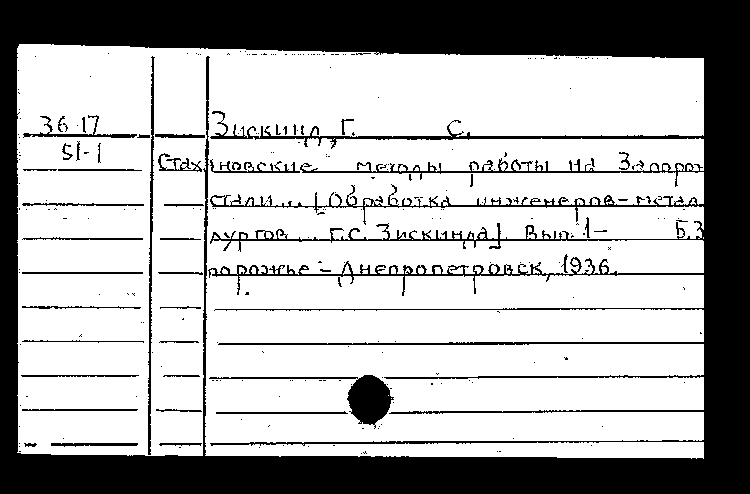 36-17
51-1
Зискинд, Г. С.
Стахановские методы работы на Запорож
стали... [Обработка инженеров-метал
лургов... Г.С. Зискинда] Вып. 1- Б.З
порожье - Днепропетровск, 1936.